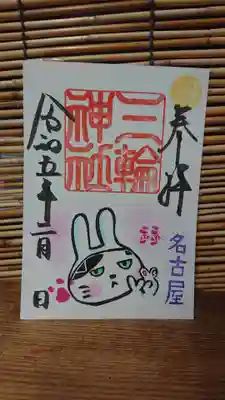 奉拝
三輪
神社
名古屋
令和五年二月 日